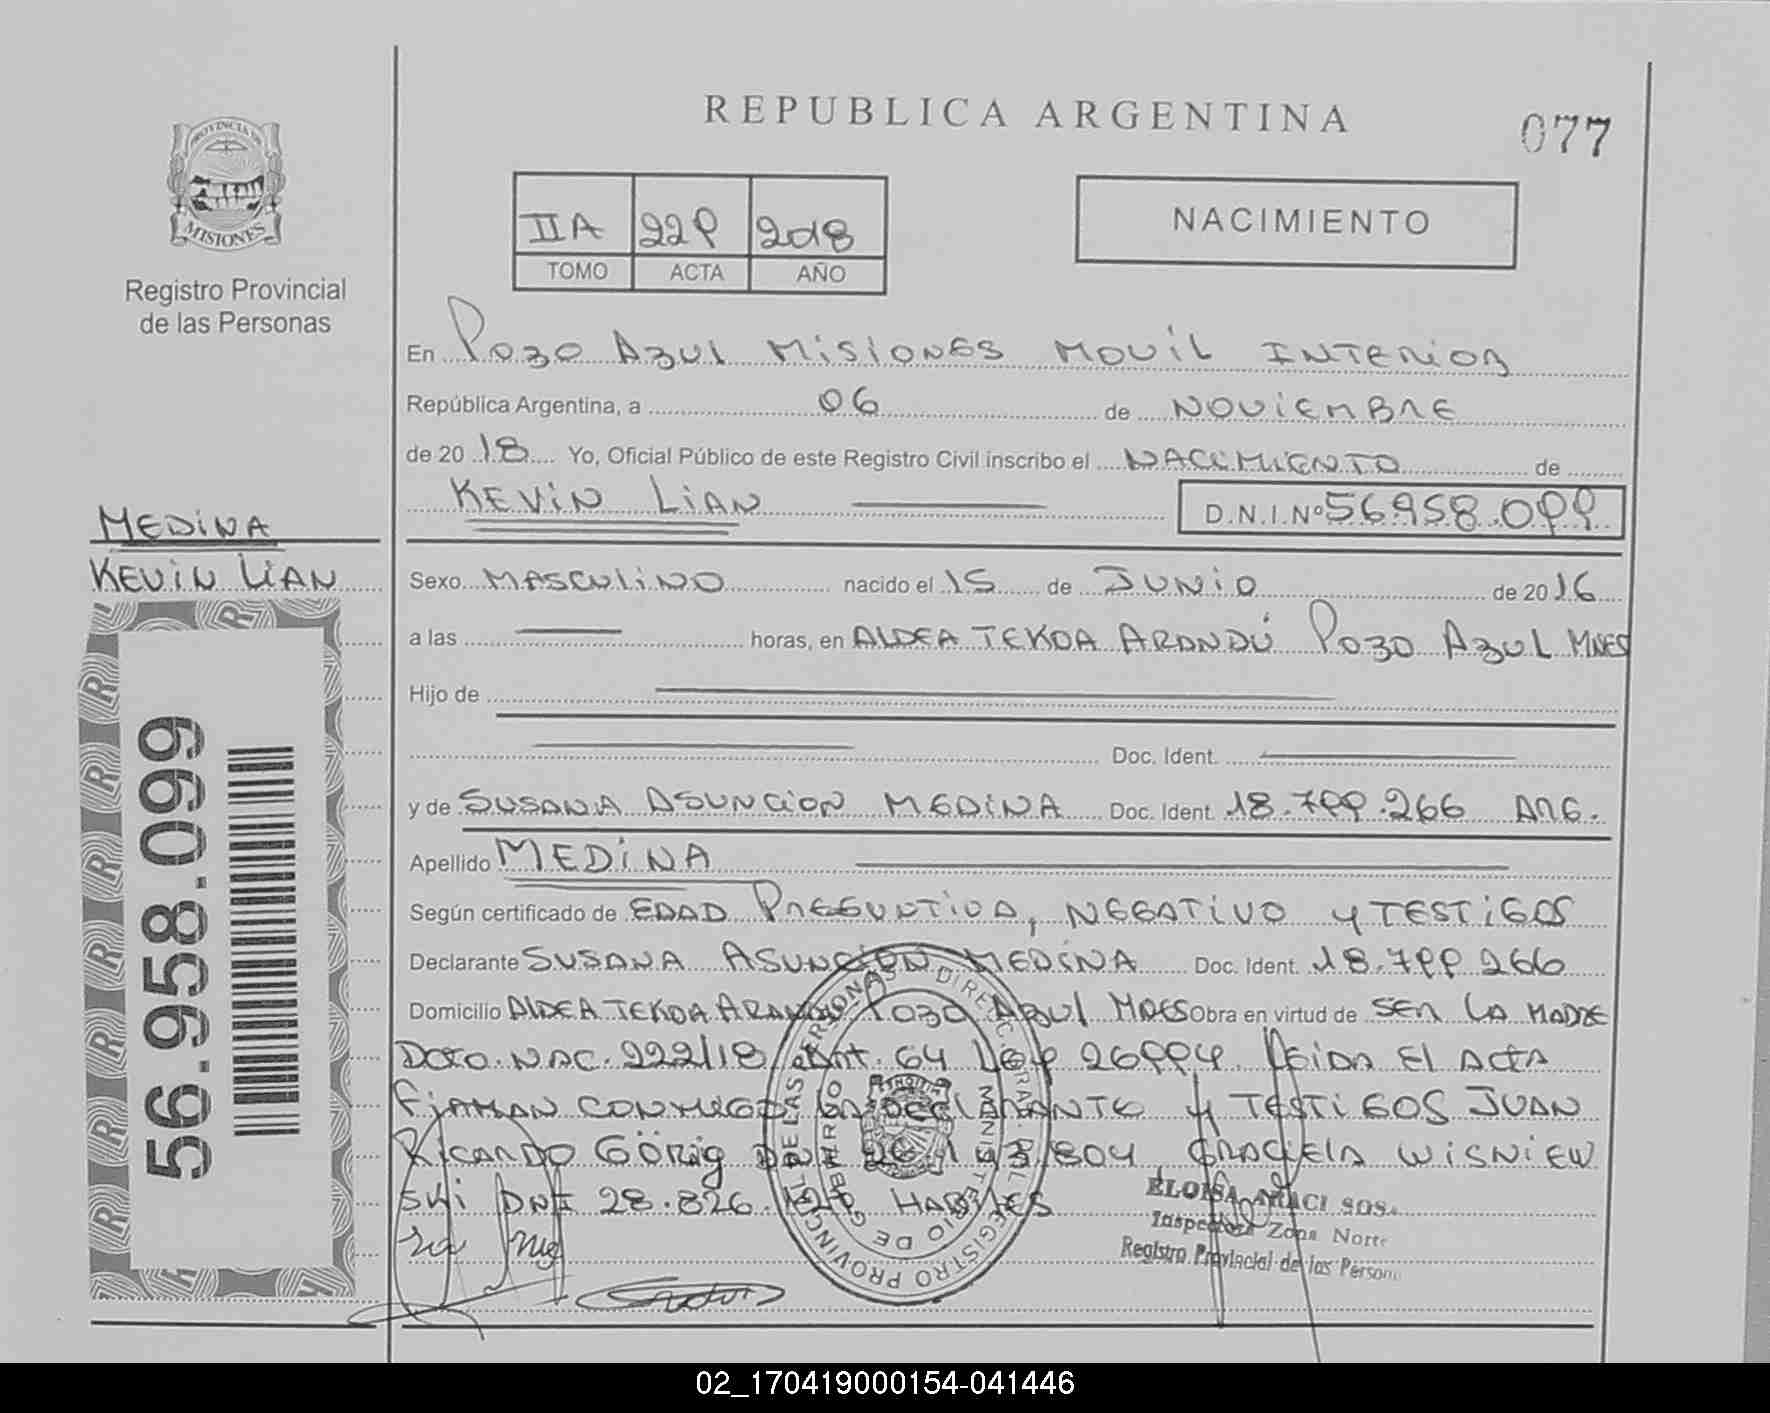 REPUBLICA ARGENTINA
077
PROVINCIA DE
MISIONES
Registro Provincial
de las Personas
IIA 229 2018
TOMO ACTA AÑO
NACIMIENTO
En Pozo Azul Misiones Movil Interior
República Argentina, a 06 de NOVIEMBRE
de 2018 Yo, Oficial Público de este Registro Civil inscribo el NACIMIENTO de
KEVIN LIAN D.N.I.Nº 56.958.099
MEDINA
KEVIN LIAN
Sexo MASCULINO nacido el 15 de JUNIO de 2016
a las horas, en ALDEA TEKOA ARANDÚ Pozo Azul MNES
Hijo de
Doc. Ident.
y de SUSANA ASUNCION MEDINA Doc. Ident. 18.799.266 ARG.
Apellido MEDINA
Según certificado de EDAD PRESUNTIVA, NEGATIVO y TESTIGOS
Declarante SUSANA ASUNCION MEDINA Doc. Ident. 18.799.266
Domicilio ALDEA TEKOA ARANDU Pozo Azul MNES Obra en virtud de SER LA MADRE
DCTO. NAC. 222/18 Art. 64 Ley 26994. Leida El ACTA
FIRMAN CONMIGO LA DECLARANTE y TESTIGOS JUAN
RICARDO GÖRIG DNI 193.804 GRACIELA WISNIEW
SKI DNI 28.826. HABILES
56.958.099
DIREC. GRAL. DEL REGISTRO PROVINCIAL DE LAS PERSONAS
MINISTERIO DE GOBIERNO
ELOISA ARACI SOSA
Inspectora Zona Norte
Registro Provincial de las Persona
02_170419000154-041446